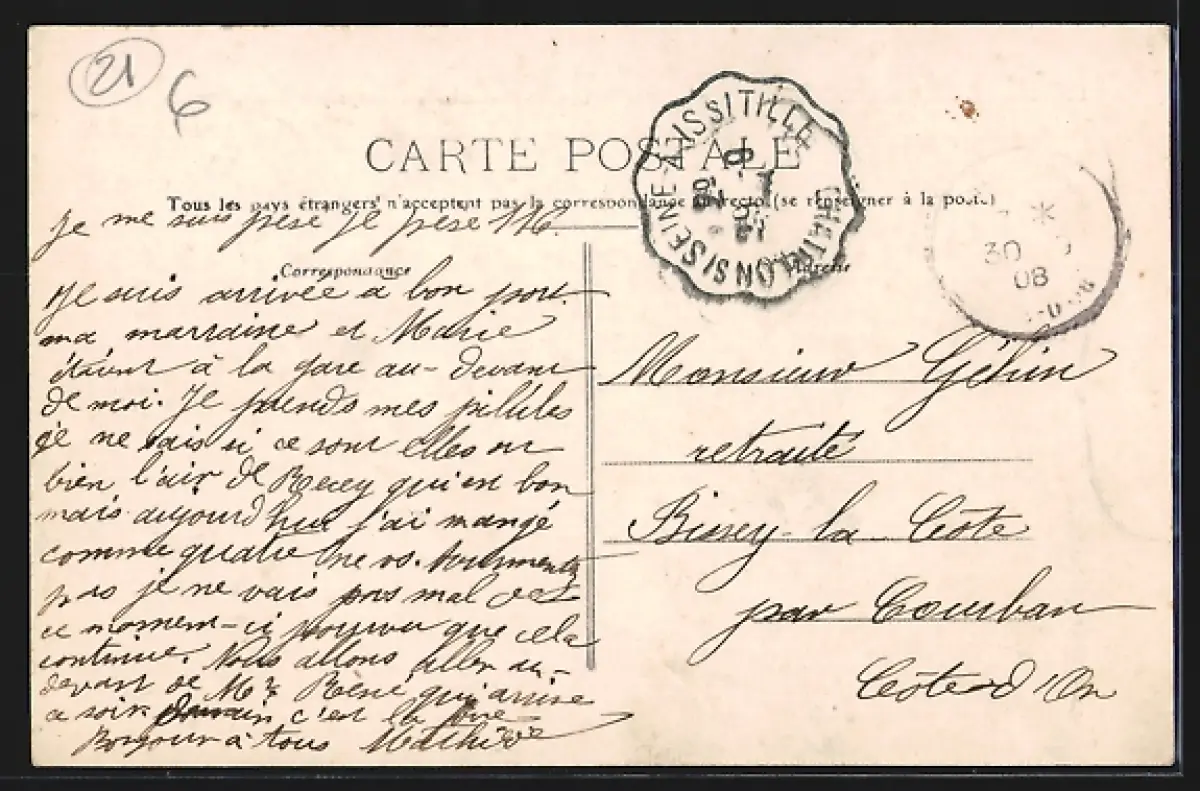 21
6
CARTE POSTALE
Tous les pays étrangers n'acceptent pas la correspondance au recto (se renseigner à la poste)
je me suis pesé je pese 116
Correspondance
Je suis arrivée a bon port
ma marraine et Marie
étaient à la gare au-devant
de moi. Je prends mes pilules
je ne sais si ce sont elles ou
bien l'air de Recey qui est bon
mais aujourd'hui j'ai mangé
comme quatre ne vs. tourmentez
pas je ne vais pas mal
ce moment-ci pourvu que cela
continue. Nous allons aller au-
devant de Mr René qui arrive
ce soir demain c'est la foire
Bonjour à tous Mathilde
IS SI TILLE
CHATILLON S/ SEINE
Adresse
30
08
Monsieur Gélin
retraité
Bissey-la-Côte
par Courban
Côte d'Or